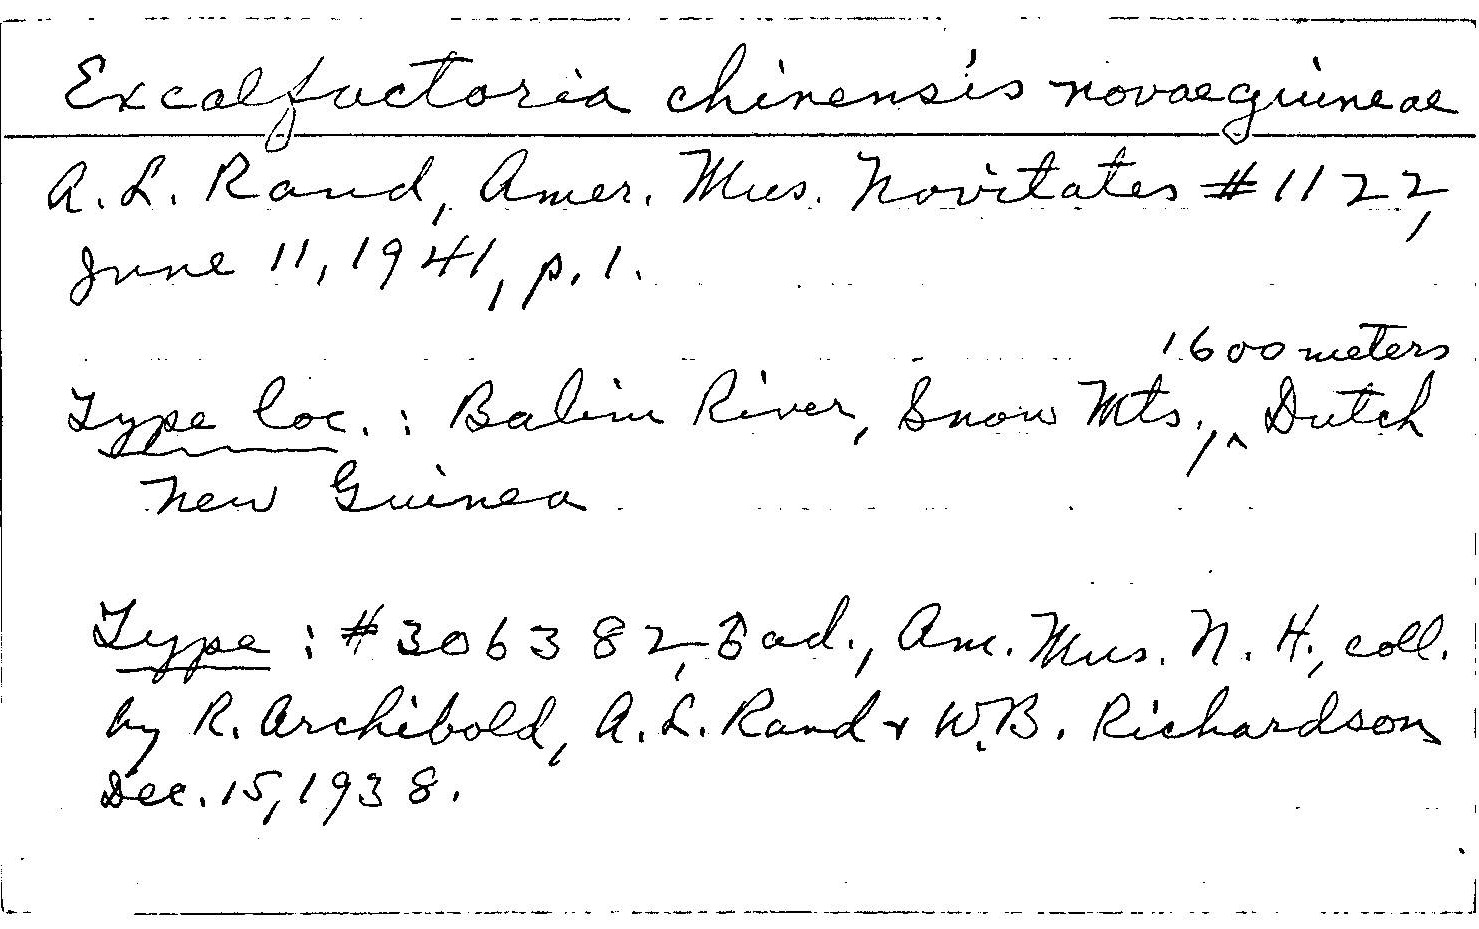 Excalfactoria chinensis novaeguineae
A. L. Rand, Amer. Mus. Novitates #1122,
June 11, 1941, p. 1.
1600 meters
Type loc. : Balim River, Snow Mts., ^ Dutch
New Guinea
Type : #306382, ♂ ad., Am. Mus. N. H., coll.
by R. Archibold, A. L. Rand & W.B. Richardson
Dec. 15, 1938.